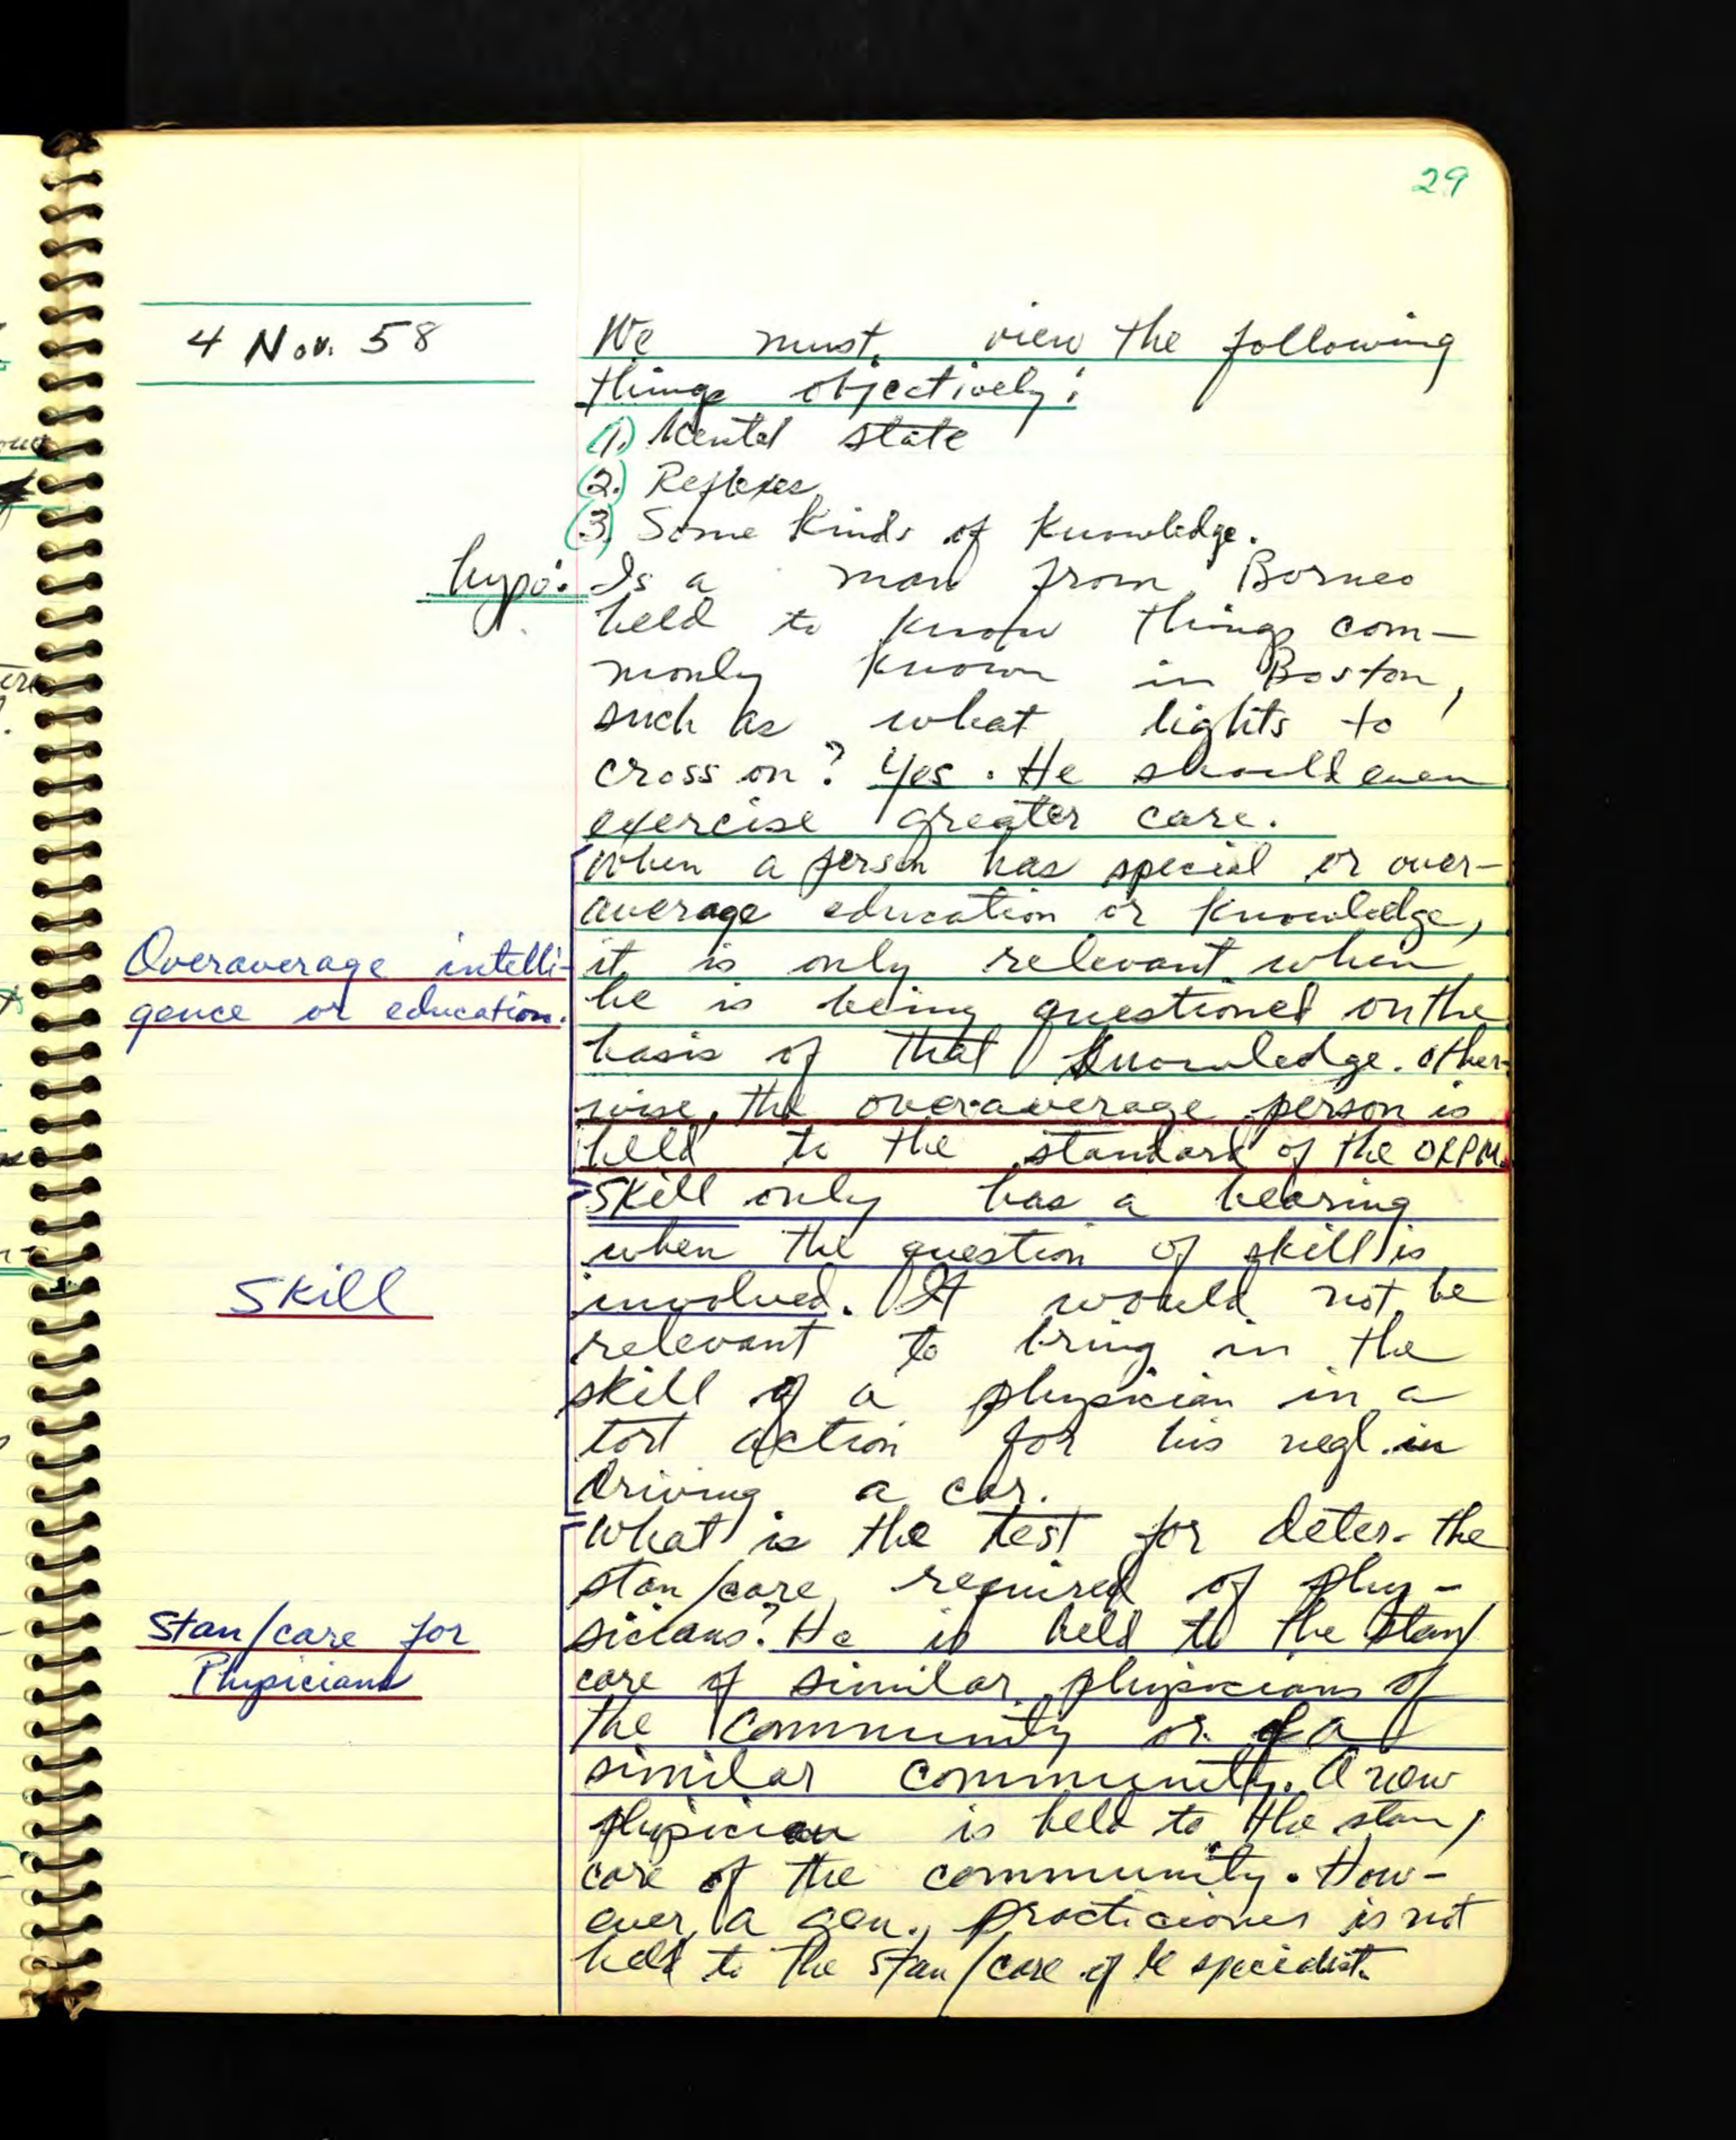 29
4 Nov. 58
We must view the following
things objectively:
(1.) Mental state
(2.) Reflexes
(3.) Some kinds of knowledge.
hypo: Is a man from Borneo
held to know things com-
monly known in Boston,
such as what lights to
cross on? Yes. He should even
exercise greater care.
When a person has special or over-
average education or knowledge,
Overaverage intelli-
gence or education.
it is only relevant when
he is being questioned on the
basis of that knowledge. Other-
wise, the overaverage person is
held to the standard of the ORPM.
Skill only has a bearing
when the question of skill is
Skill
involved. It would not be
relevant to bring in the
skill of a physician in a
tort action for his negl. in
driving a car.
What is the test for deter. the
stan/care required of phy-
Stan/care for
Physicians
sicians? He is held to the stan/
care of similar physicians of
the community or of a
similar community. A new
physician is held to the stan/
care of the community. How-
ever, a gen. practicioner is not
held to the stan/care of specialist.